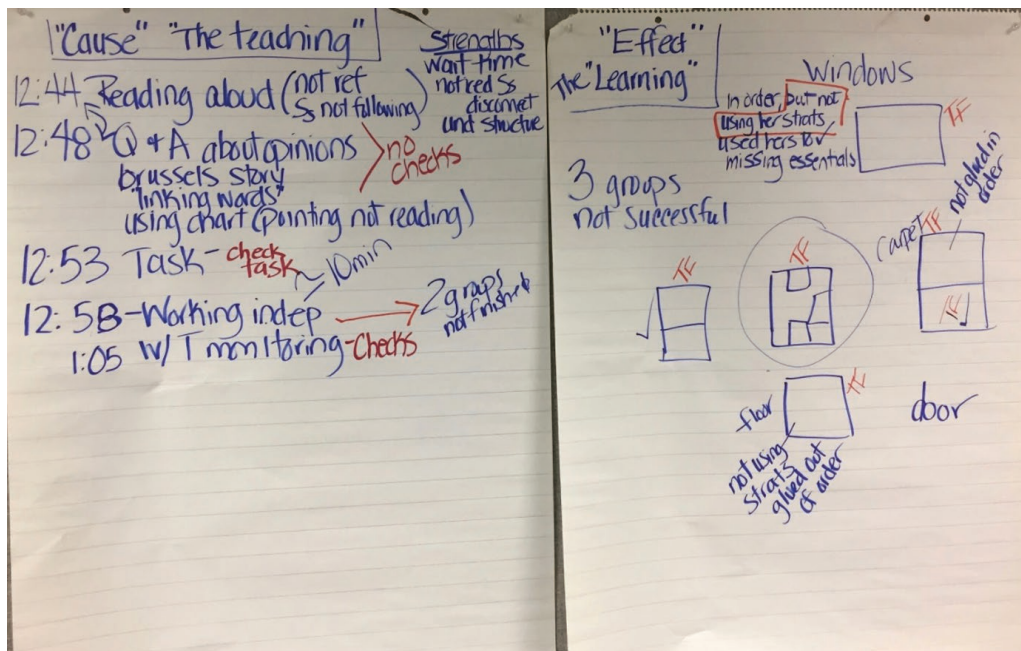 "Cause" "The teaching"
Strengths
wait time
noticed Ss
disconnet
and structue
12:44 Reading aloud (not ref
Ss not following)
12:48 Q + A about opinions
brussels story
"linking words"
using chart (pointing not reading)
no
checks
12:53 Task - check
task
10min
12:58 - Working indep
2 groups
not finished
1:05 w/ T monitoring - Checks
"Effect"
The "Learning"
Windows
In order, but not
using her strats
used hers for
missing essentials
TF
3 groups
not successful
TF
TF
carpet
TF
not glued in
order
TF
floor
TF
not using
strats
glued out
of order
door